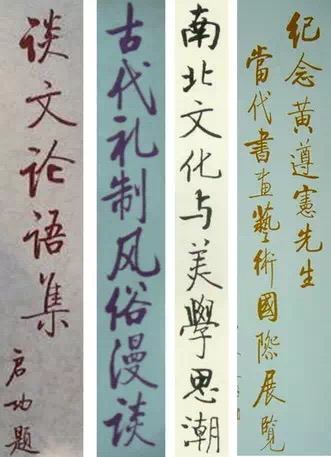 谈文论语集
启功题
古代礼制风俗漫谈
南北文化与美學思潮
纪念黄遵憲先生
當代書畫藝術國際展覽